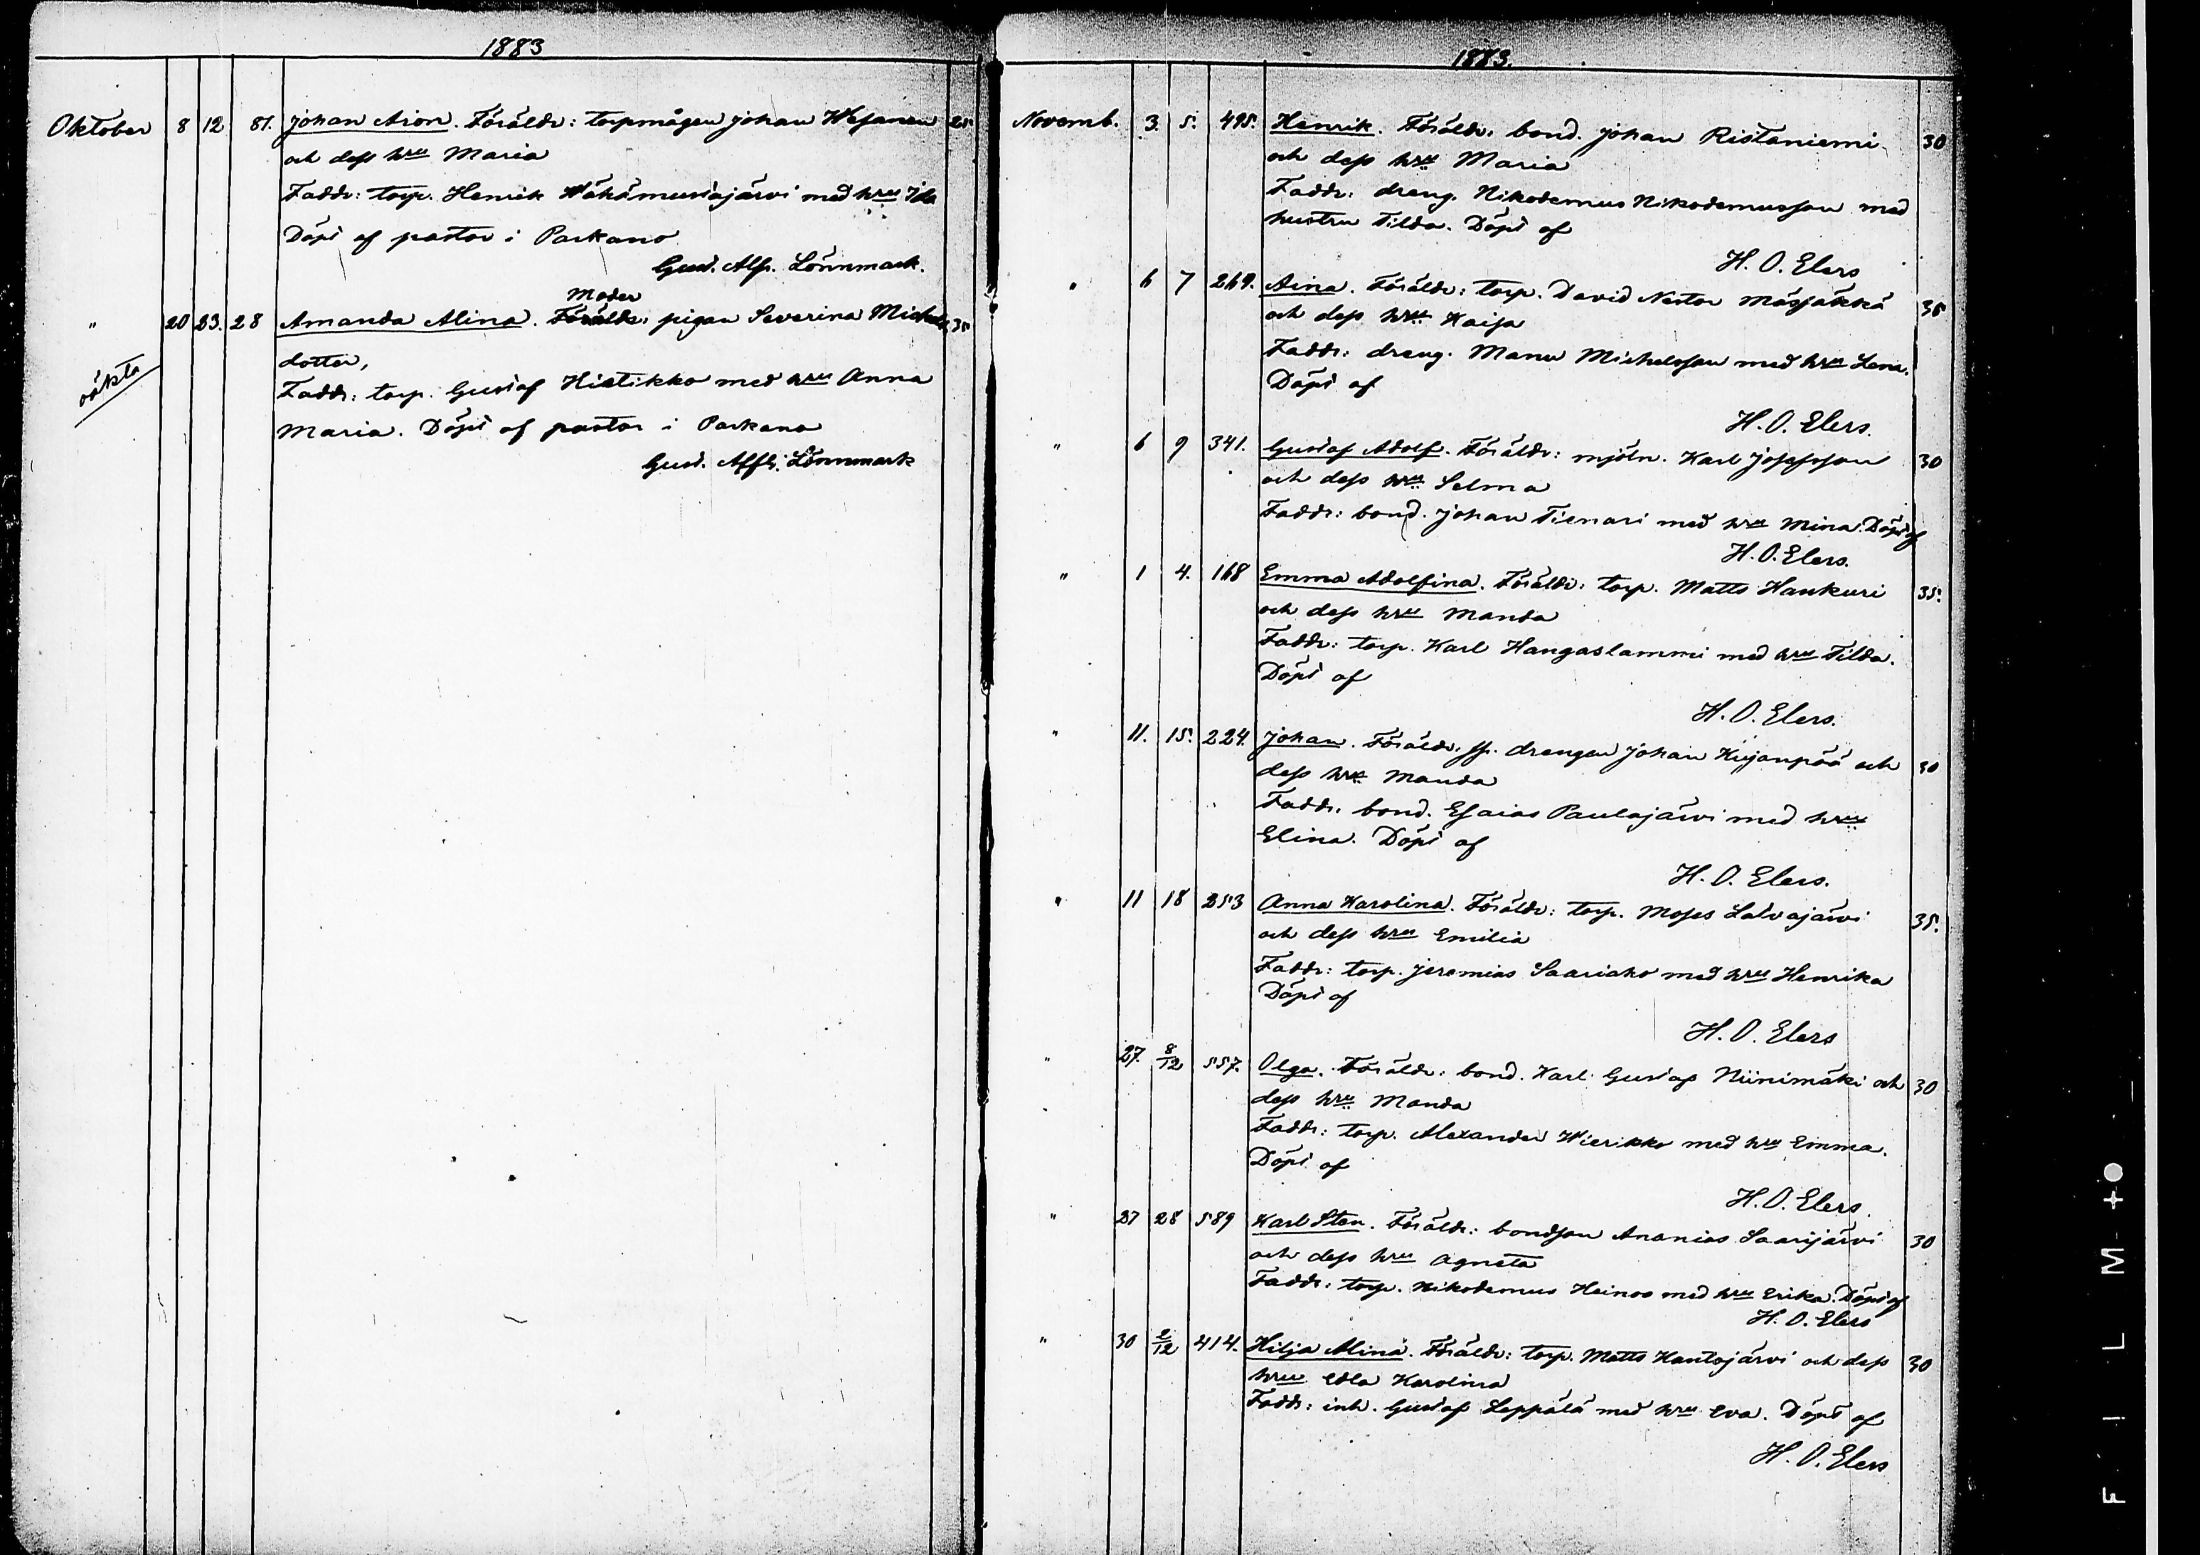 1883
Oktober 8 12 81. Johan Aron. Föräldr: torpmågen Johan Wesanen 25
och dess hru Maria
Faddr: torp. Henrik Wähämustajärvi med hru Ida
Döpt af pastor i Parkano
Gust. Alfr. Lönnmark.
Moder
" 20 23. 28 Amanda Alina. Föräldr: pigan Severina Michels 35
oäkta
dotter,
Faddr: torp. Gustaf Hietikko med hru Anna
Maria. Döpt af pastor i Parkano
Gust. Alfr. Lönnmark
1883.
Novemb. 3. 5. 495. Henrik. Föräldr. bond. Johan Ristaniemi 30
och dess hru Maria
Faddr: dreng. Nikodemus Nikodemusson med
hustru Tilda. Döpt af
H. O. Elers
" 6 7 269. Aina. Föräldr: torp. David Nestor 35
och dess hru Kaisa
Faddr: dreng. Manu Michelsson med hru Lena.
Döpt af
H. O. Elers.
" 6 9 341. Gustaf Adolf. Föräldr: mjöln. Karl Josefsson 30
och dess hru Selma
Faddr: bond. Johan Tienari med hru Mina. Döpt af
H. O. Elers.
" 1 4. 168 Emma Adolfina. Föräldr: torp. Matts Haukuri 35.
och dess hru Manda
Faddr: torp. Karl Hangaslammi med hru Tilda.
Döpt af
H. O. Elers.
" 11. 15. 224. Johan. Föräldr. drengen Johan Kujanpää och 30
dess hru Manda
Faddr. bond. Esaias Paulajärvi med hru
Elina. Döpt af
H. O. Elers.
" 11 18 253 Anna Karolina. Föräldr: torp. Moses Latvajärvi 35.
och dess hru Emilia
Faddr: torp. Jeremias Saariaho med hru Henrika
Döpt af
H. O. Elers
" 27. 8/12 557. Olga. Föräldr: bond. Karl Gustaf Niinimäki och 30
dess hru Manda
Faddr: torp. Alexander Wierikko med hru Emma.
Döpt af
H. O. Elers.
" 27 28 589 Karl Sten. Föräldr: bondson Ananias Saarijärvi 30
och dess hru Agneta
Faddr: torp. Nikodemus Heinoo med hru Erika. Döpt af
H. O. Elers
" 30 2/12 414. Hilja Alina. Föräldr: torp. Matts Kantojärvi och dess 30
hru Edla Karolina
Faddr: inh. Gustaf Leppälä med hru Eva. Döpt af
H. O. Elers
FILM